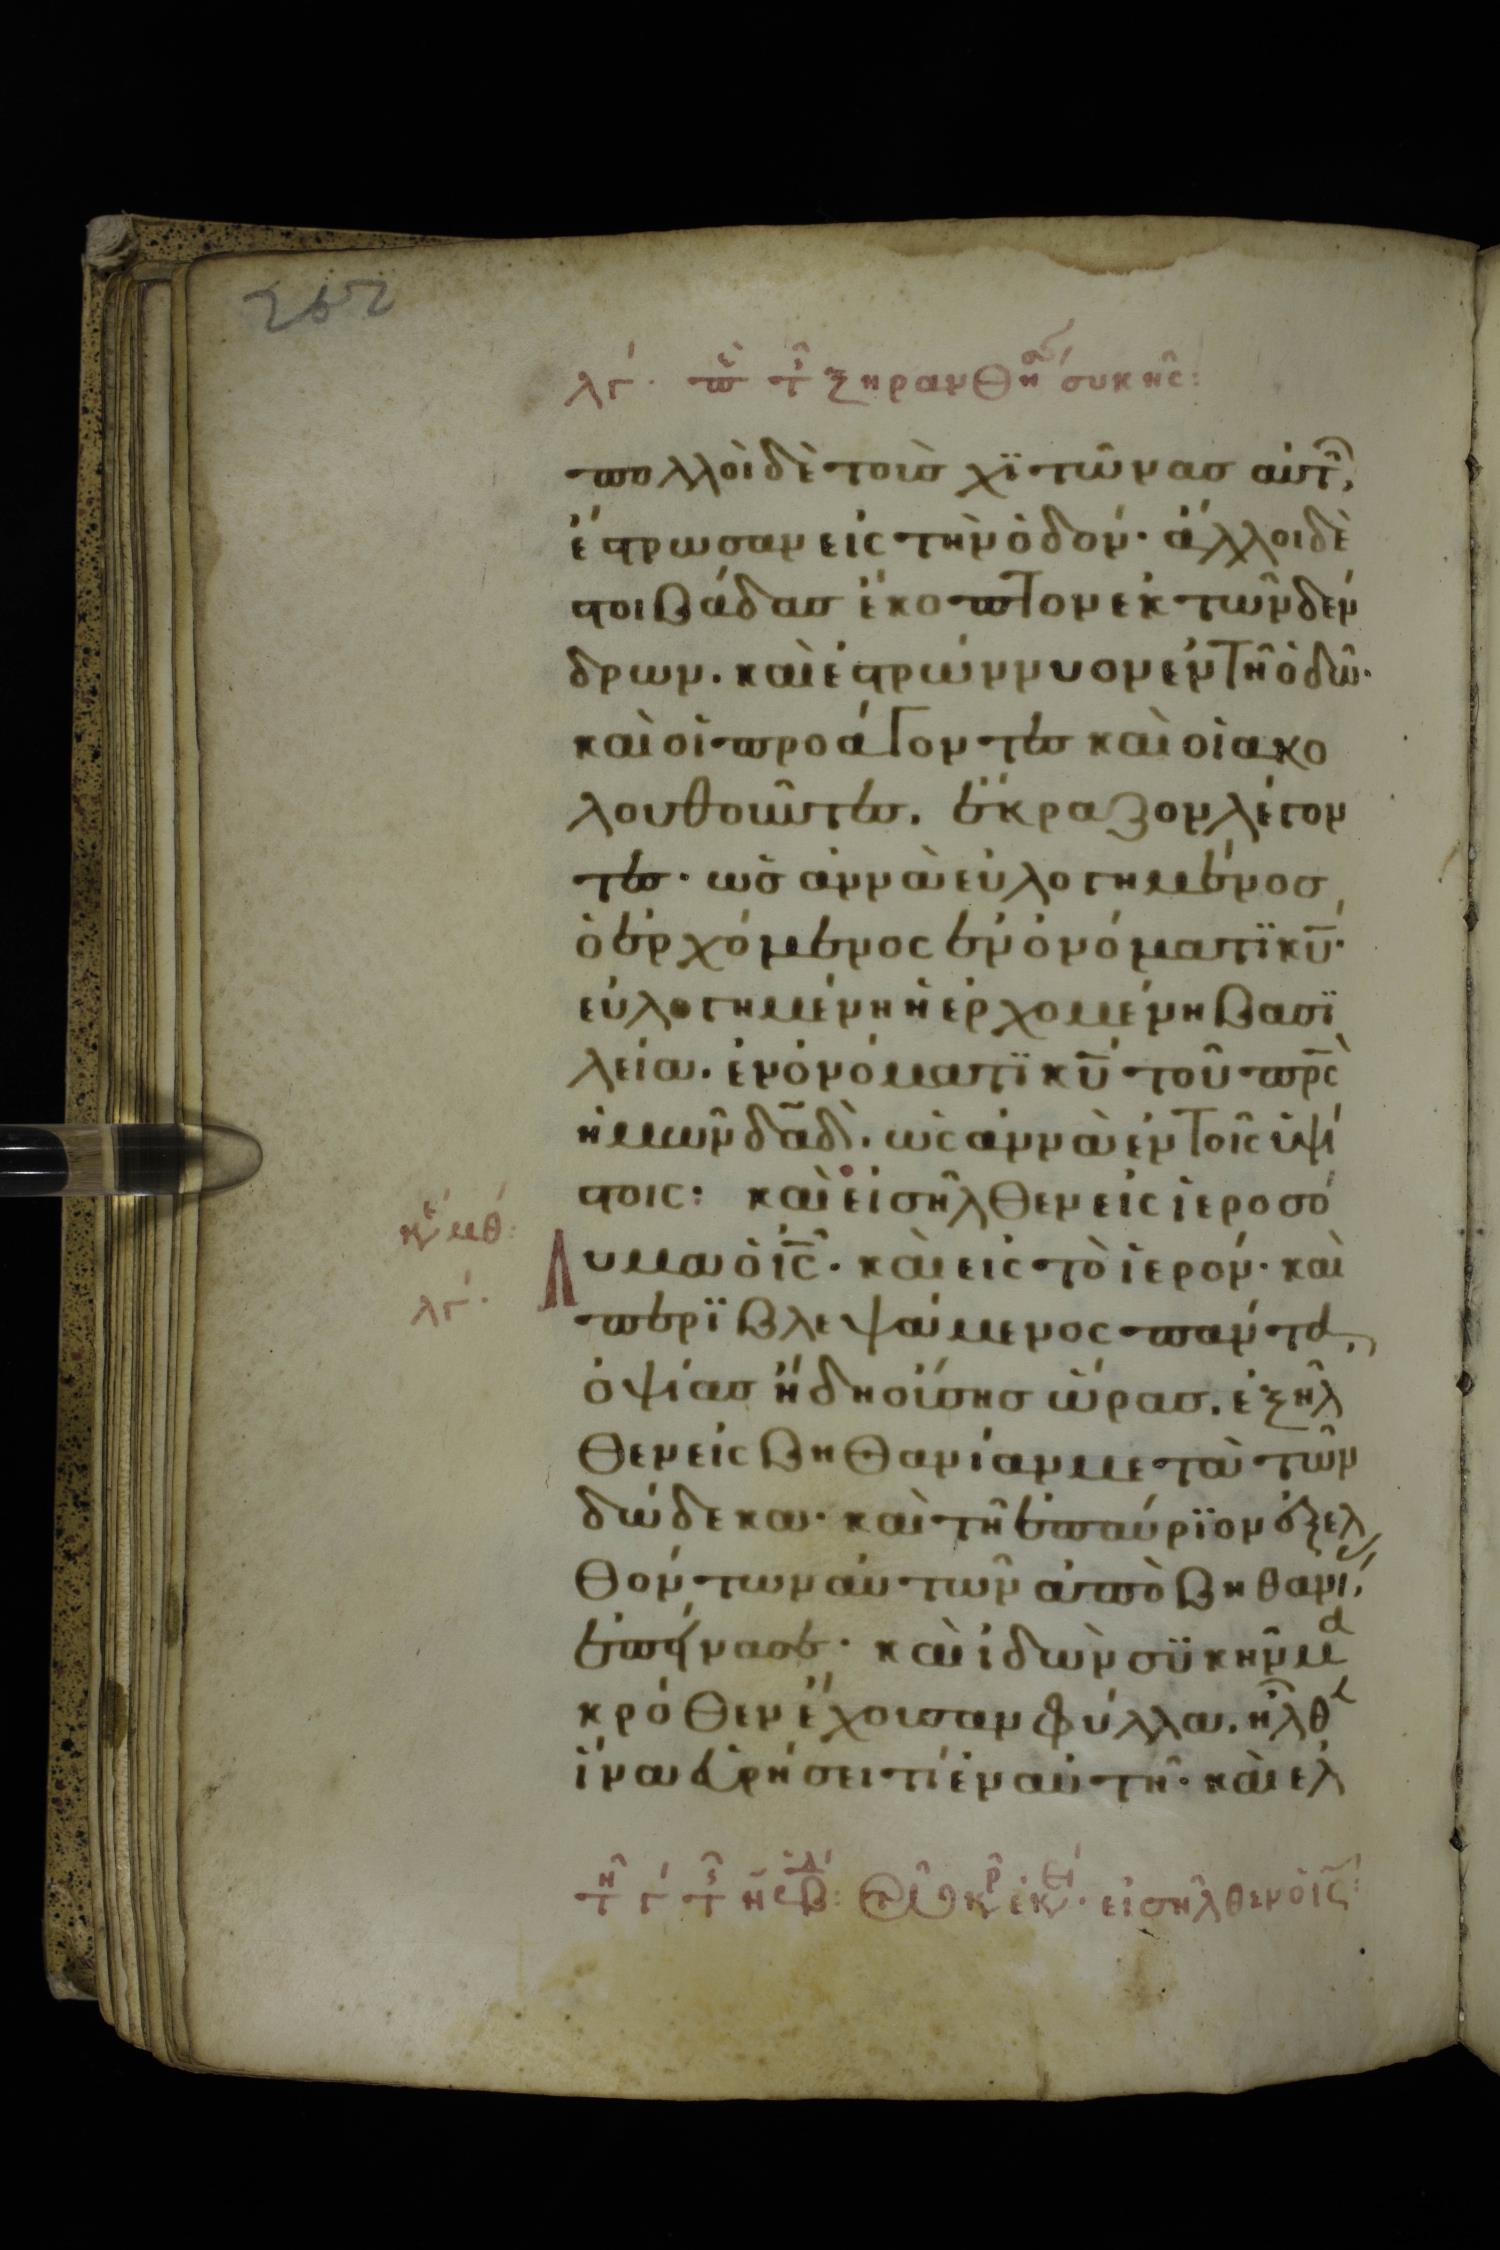 252
λγ· πε τ ξηρανθη συκῆς:
πολλοὶ δὲ τοὺσ χϊτῶνασ αὐτ,
ἔστρωσαν εἰς τὴν ὁδόν· ἄλλοι δὲ
στοιβάδασ ἔκοπτον ἐκ τῶν δέν
δρων. καὶ ἐστρώννυον ἐν τῆ ὁδῶ·
καὶ οἱ προάγοντες καὶ οἱ ακο
λουθοῦντες. ἔκραζον λέγον
τες· ὡσ ἀννὰ εὐλογημένοσ
ὁ ἐρχόμενος ἐν ὀνόματϊ κῡ·
εὐλογημένη ἡ ἐρχομένη βασϊ
λεία. ἐν ὀνόματϊ κῡ τοῦ πρ̄ς
ἡμῶν δᾱδ̄. ὡς ἀννὰ ἐν τοῖς ὑψί
στοις: καὶ εἰσῆλθεν εἰς ἱεροσό
λυμα ὁ ις̄. καὶ εἰς τὸ ἱερόν· καὶ
περϊβλεψάμενος πάντα,
ὀψίασ ἤδη οὔσησ ὥρασ. ἐξῆλ
θεν εἰς βηθανίαν μετὰ τῶν
δώδεκα. καὶ τῆ ἐπαύρϊον ἐξελ
θόντων αὐτῶν ἀπὸ βηθανί,
ἐπείνασε. καὶ ἰδὼν συκῆν μα
κρόθεν ἔχουσαν φύλλα. ἦλθε
ἵνα εὑρήσει τί ἐν αὐτῆ· καὶ ἐλ
κε μθ:
λγ·
εἰσῆλθεν ὁ ις̄: